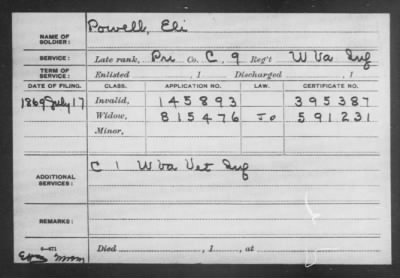 NAME OF SOLDIER: Powell, Eli
SERVICE: Late rank, Pri Co. C, 9 Reg't W Va Inf
TERM OF SERVICE: Enlisted , 1 Discharged , 1
DATE OF FILING. CLASS. APPLICATION NO. LAW. CERTIFICATE NO.
1869 July 17 Invalid, 145893 395387
Widow, 815476 591231
Minor,
ADDITIONAL SERVICES: C 1 W Va Vet Inf
REMARKS:
Died , 1 , at
6—671